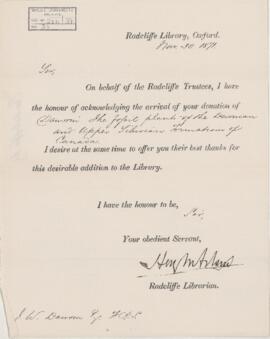 Radcliffe Library, Oxford.
Nov. 30 1871
Sir,
On behalf of the Radcliffe Trustees, I have
the honour of acknowledging the arrival of your donation of
Dawson The fossil plants of the Devonian
and Upper Silurian formations of
Canada
I desire at the same time to offer you their best thanks for
this desirable addition to the Library.
I have the honour to be,
Sir,
Your obedient Servant,
Radcliffe Librarian.
J. W. Dawson